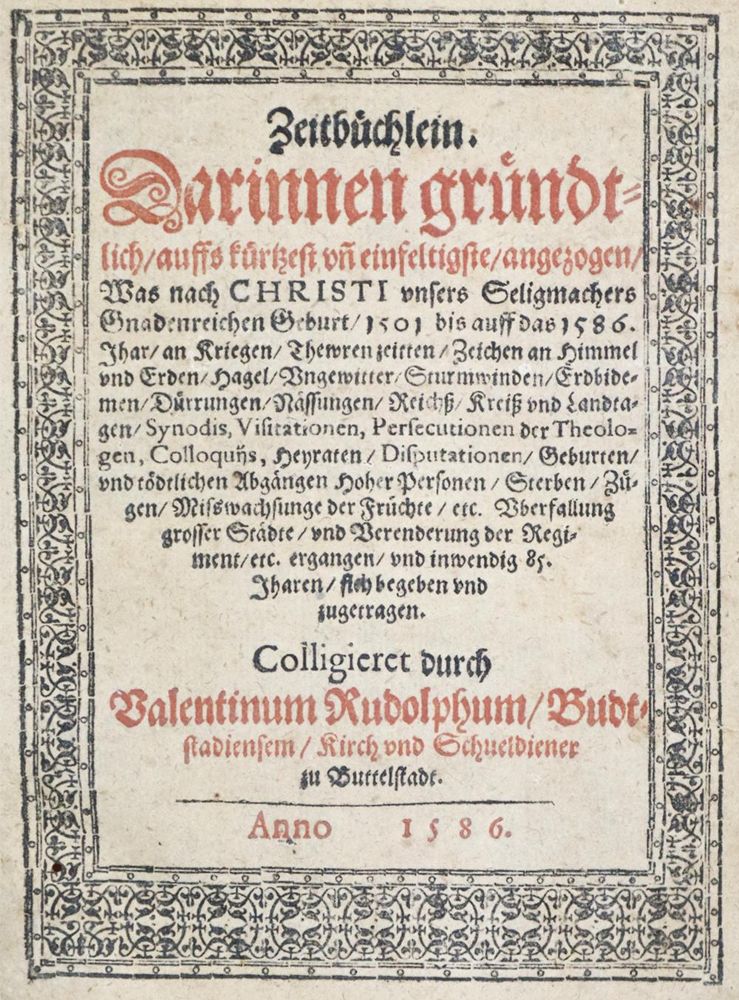 Zeitbüchlein.
Darinnen gründt-
lich/auffs kürtzest vñ einfeltigste/angezogen/
Was nach CHRISTI vnsers Seligmachers
Gnadenreichen Geburt/1501 bis auff das 1586.
Jhar/an Kriegen/Thewren zeitten/Zeichen an Himmel
vnd Erden/Hagel/Vngewitter/Sturmwinden/Erdbide-
men/Dürrungen/Nässungen/Reichß/Kreiß vnd Landta-
gen/Synodis, Visitationen, Persecutionen der Theolo-
gen, Colloquijs, Heyraten/Disputationen/Geburten/
vnd tödtlichen Abgängen Hoher Personen/Sterben/Zü-
gen/Misswachsunge der Früchte/etc. Vberfallung
grosser Städte/vnd Verenderung der Regi-
ment/etc. ergangen/vnd inwendig 85.
Jharen/sich begeben vnd
zugetragen.
Colligieret durch
Valentinum Rudolphum/Budt-
stadiensem/Kirch vnd Schueldiener
zu Buttelstadt.
Anno 1586.